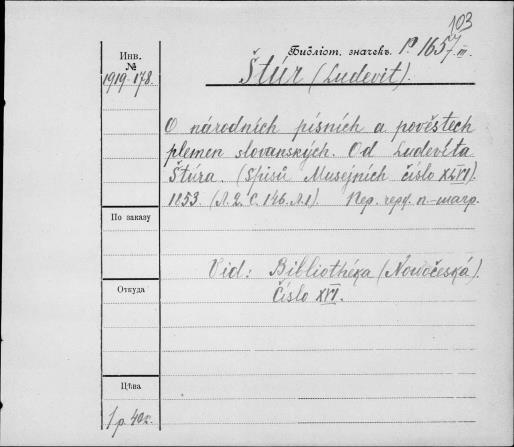 103
Библіот. значекъ. P. 1657 III.
Инв.
№
1919-178.
Štúr (Ludevit).
O národních písních a pověstech
plemen slovanských. Od Ludevíta
Štúra. (Spisů Musejních číslo XLVI).
1853. (Л. 2. С. 146. Л. 1). Пер.
По заказу
Vid: Bibliothéka (Novočeská).
Číslo XVI.
Откуда
Цѣна
1 р. 40 к.